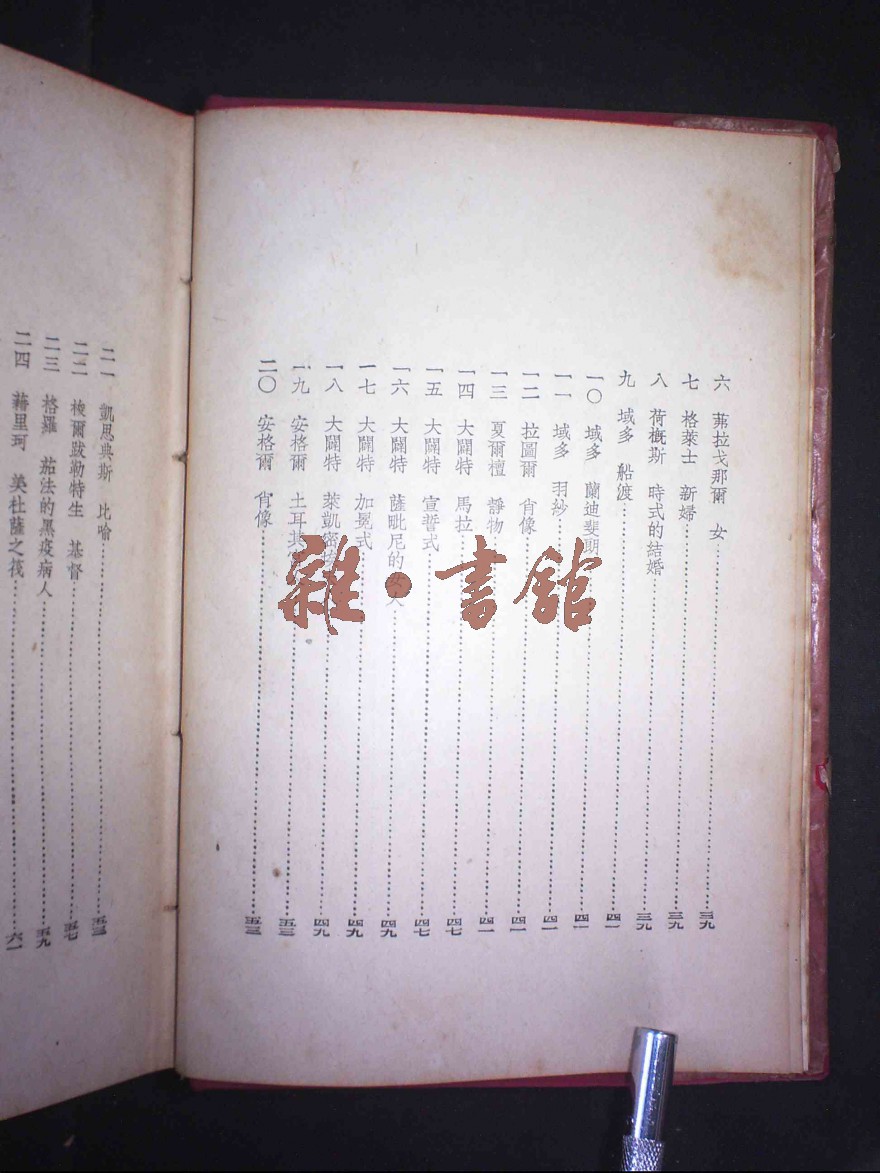 六 茀拉戈那爾 女……三九
七 格萊士 新婦……三九
八 荷概斯 時式的結婚……三九
九 域多 船渡……四一
一〇 域多 蘭迪斐朋……四一
一一 域多 羽紗……四一
一二 拉圖爾 肖像……四一
一三 夏爾檀 靜物……四一
一四 大闢特 馬拉……四七
一五 大闢特 宣誓式……四七
一六 大闢特 薩毗尼的女人……四九
一七 大闢特 加冕式……四九
一八 大闢特 萊凱密……四九
一九 安格爾 土耳其……五三
二〇 安格爾 肖像……五三
二一 凱思典斯 比喻……五三
二二 梭爾跋勒特生 基督……五七
二三 格羅 茄法的黑疫病人……五九
二四 藉里珂 美杜薩之筏……六一
雜·書館